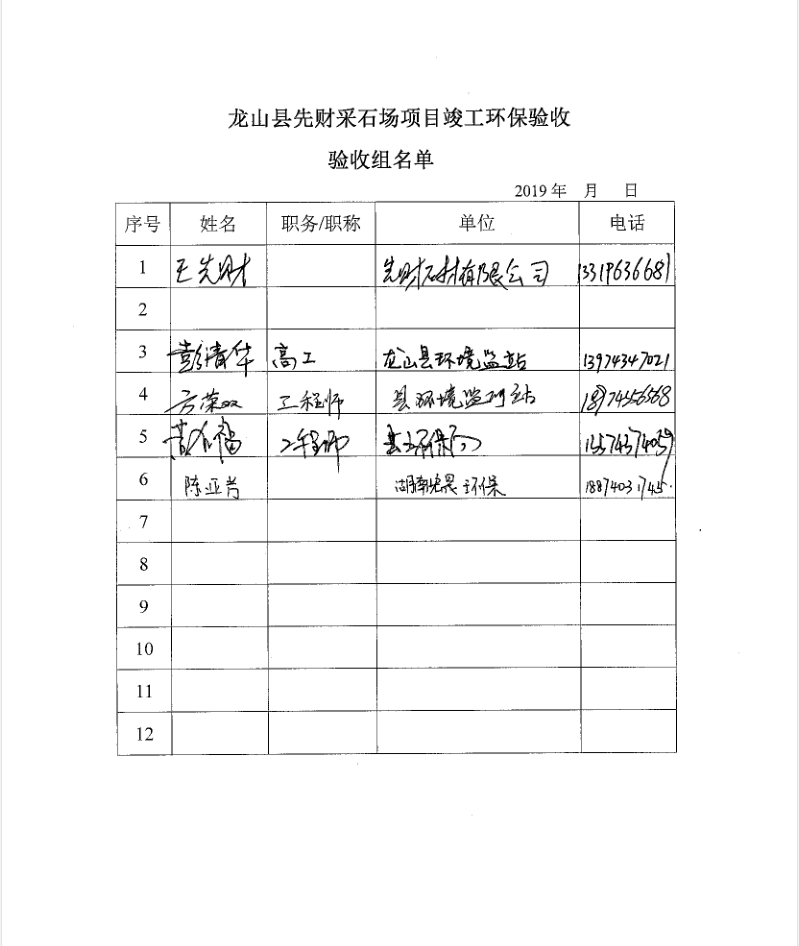 龙山县先财采石场项目竣工环保验收
验收组名单
2019 年 月 日
序号 姓名 职务/职称 单位 电话
1 王先财 先财石材有限公司 13319636681
2
3 彭清华 高工 龙山县环境监站 13974347021
4 方荣双 工程师 县环境监测站
5 工程师
6 陈亚 湖南 环保 18874031745
7
8
9
10
11
12